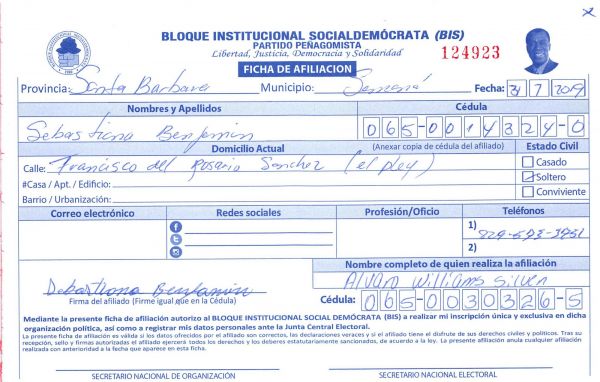 BLOQUE INSTITUCIONAL SOCIALDEMÓCRATA (BIS)
PARTIDO PEÑAGOMISTA
Libertad, Justicia, Democracia y Solidaridad
124923
FICHA DE AFILIACION
Provincia: Santa Barbara Municipio: Samaná Fecha: 31 7 2019
Nombres y Apellidos Cédula
Sebastiana Benjamin 065-0014324-0
Domicilio Actual (Anexar copia de cédula del afiliado) Estado Civil
Calle: Francisco del Rosario Sanchez (el pley) Casado
#Casa / Apt. / Edificio: Soltero
Barrio / Urbanización: Conviviente
Correo electrónico Redes sociales Profesión/Oficio Teléfonos
1) 829-673-3951
2)
Nombre completo de quien realiza la afiliación
Alvaro Williams Silven
Firma del afiliado (Firme igual que en la Cédula) Cédula: 065-0030326-5
Mediante la presente ficha de afiliación autorizo al BLOQUE INSTITUCIONAL SOCIAL DEMÓCRATA (BIS) a realizar mi inscripción única y exclusiva en dicha
organización política, así como a registrar mis datos personales ante la Junta Central Electoral.
La presente ficha de afiliación es válida si los datos ofrecidos por el afiliado son correctos, las declaraciones veraces y si el afiliado tiene el disfrute de sus derechos civiles y políticos. Tras su
recepción, sello y firmas autorizadas el afiliado ejercerá todos los derechos y los deberes estatutariamente sancionados, de acuerdo a la ley. La presente afiliación anula cualquier afiliación
realizada con anterioridad a la fecha que aparece en esta ficha.
SECRETARIO NACIONAL DE ORGANIZACIÓN SECRETARIO NACIONAL ELECTORAL